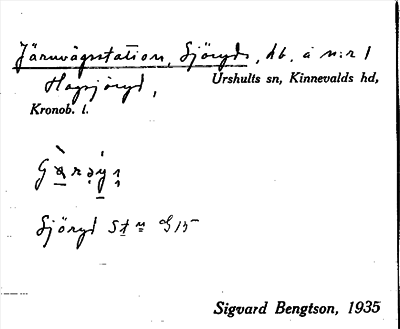 Järnvägsstation, Sjöryds, hb. å n:r 1
Hagsjöryd,
Urshults sn, Kinnevalds hd,
Kronob. l.
Sjöryd St
Sigvard Bengtson, 1935